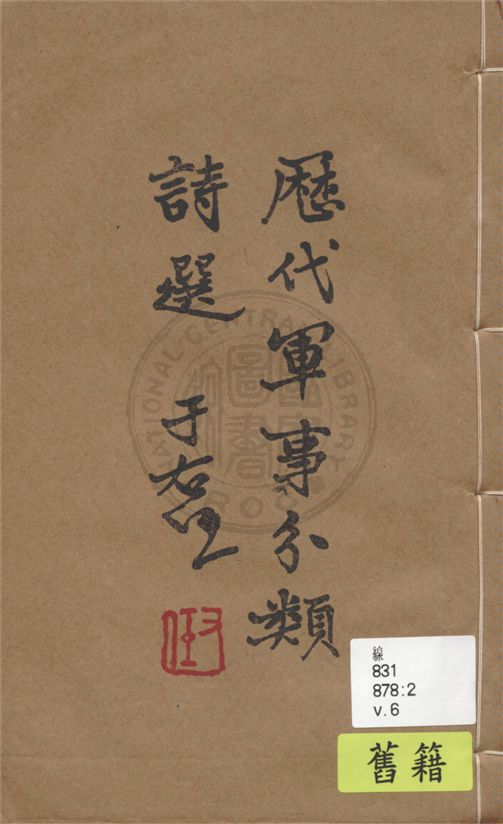 歷代軍事分類
詩選 于右任
線
831
878:2
v.6
舊籍
NATIONAL CENTRAL LIBRARY